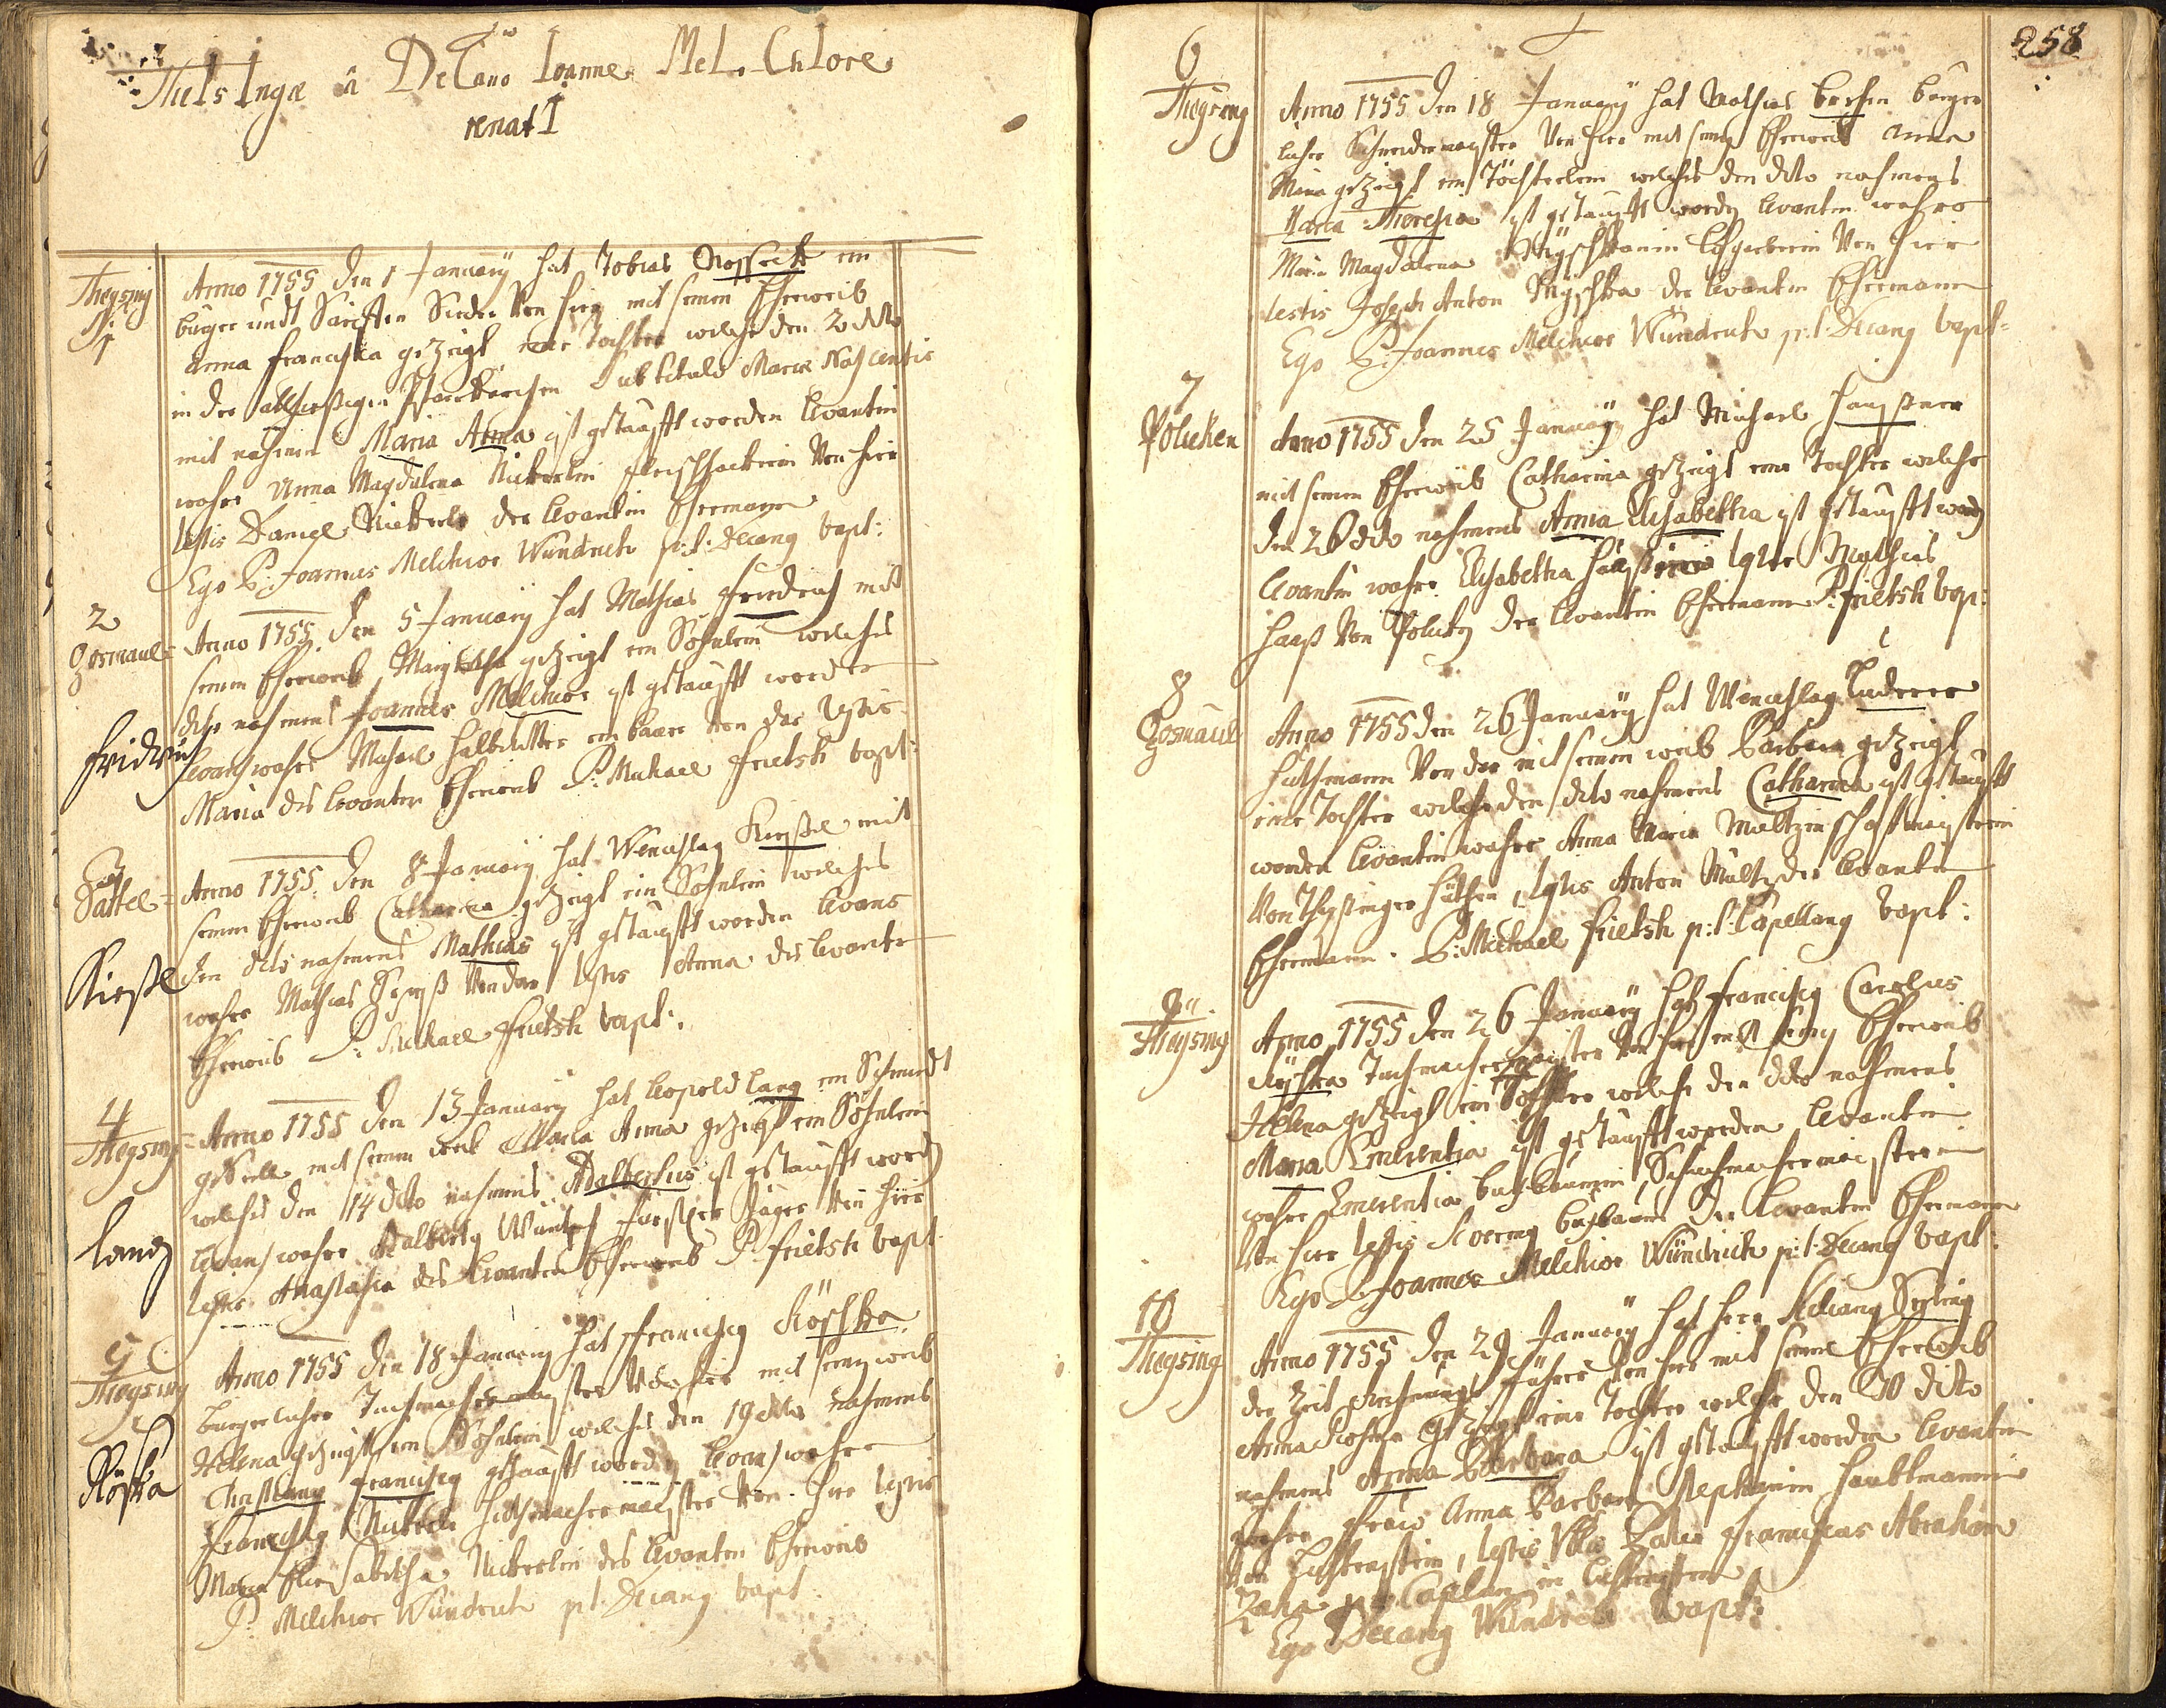 TheIsIngæ â DeCano Ioanne MeLChIore
renatI
Theysing
1
Anno 1755 den 1 January hat Tobias Rosseck ein
burger undt Saiffen Sieder Von hier mit seinen Eheweib
Anna Francisca gezeigt eine Tochter welche den 2 dito
in der allhiesigen Pfarrkirchen sub titulo Mariæ Nascentis
mit nahmen Maria Anna ist getaufft worden Levantin
wahre Anna Magdalena Nickerlin fleischhackerin Von hier
testis Daniel Nickerle der Levantin Ehemann
Ego P: Joannes Melchior Wundrich p:t: Decanq bapt:
2
Gosmaul=
Fridrich
Anno 1755 den 5 January hat Mathias Friedrich mit
seinen Eheweib Margretha gezeigt ein Söhnlein welches
dito nahmens Joannes Melchior ist getaufft worden
Levans wahre Michael Halbritter ein baur von dar testis
Maria des Levanten Eheweib P: Michael Frietsch bapt:
3
Sattel=
Kießl
Anno 1755 den 8 January hat Wencislaq Kießel mit
seinen Eheweib Catharina gezeigt ein Söhnlein welches
den dito nahmens Mathias ist getaufft worden Levans
wahre Mathias von dar testis Anna des Levanten
Eheweib P: Michael Frietsch bapt:
4
Theysing=
Lang
Anno 1755 den 13 January hat Leopold Lang ein Schmidt
gesell mit seinen weib Maria Anna gezeigt ein Söhnlein
welches den 14 dito nahmens Adalbertus ist getaufft word
Levans wahre Adalbertq Jäger von hier
testis Anastasia des Levanten Eheweib P: Frietsch bapt.
5
Theysing
Röska
Anno 1755 den 18 January hat Franciscq Röschka
burgerlicher Tuchmachermeister Von hier mit seinen weib
Helena gezeigt ein Söhnlein welches den 19 dito nahmens
Christianq Franciscq getaufft worden Levans wahre
Franciscq Nickerle Huthmachermeister Von hier testis
Maria Elisabetha Nickerlin des Levanten Eheweib
P: Melchior Wundrich p:t: Decanq bapt:
258
6
Theysing
Anno 1755 den 18 January hat Mathias burger
licher Schneidermeister Von hier mit seinen Eheweib Anna
Maria gezeigt ein Töchterlein welches den dito nahmens
Maria Theresia ist getaufft worden Levantin wahre
Maria Magdalena Von hier
testis Joseph Anton der Levantin Ehemann
Ego P: Joannes Melchior Wundrich p:t: Decanq bapt:
7
Poliken
Anno 1755 den 25 January hat Michael
mit seinen Eheweib Catharina gezeigt eine Tochter welche
den 26 dito nahmens Anna Elisabetha ist getaufft word
Levantin wahre Elisabetha testis Mathias
Haaß Von Polikn der Levantin Ehemann P: Frietsch bap:
8
Gosmaul
Anno 1755 den 26 January hat Wencislaq Luderer
Huthmann Von dar mit seinen weib Barbara gezeigt
eine Tochter welche den dito nahmens Catharina ist getaufft
worden Levantin wahre Anna Maria Multzin schafmeisterin
Von Theysinger Hütten, testis Anton Multz der Levantin
Ehemann. P: Michael Frietsch p:t: Capellanq bapt:
9
Theysing
Anno 1755 den 26 January hat Franciscq Carolus
Röschka Tuchmachermeister Von hier mit seinen Eheweib
Helena gezeigt ein Tochter welche den dito nahmens
Maria Emerentia ist getaufft worden Levantin
wahre Emerentia Buxbaumin Schuhmachermeisterin
Von hier testis Buxbaum der Levantin Ehemann
Ego P: Joannes Melchior Wundrich p:t: Decanq bapt:
10
Theysing
Anno 1755 den 29 January hat Herr
der Zeit führer Von hier mit seinen Eheweib
Anna Rosina gezeigt eine Tochter welche den 30 dito
nahmens Anna Barbara ist getaufft worden Levantin
wahre Frau Anna Barbara Stephanin Haubtmannin
Von Lichtenstein, testis Franciscus Abraham
Zaha p:t: Caplan in Lichtenstein
Ego Decanq Wundrich bapt: